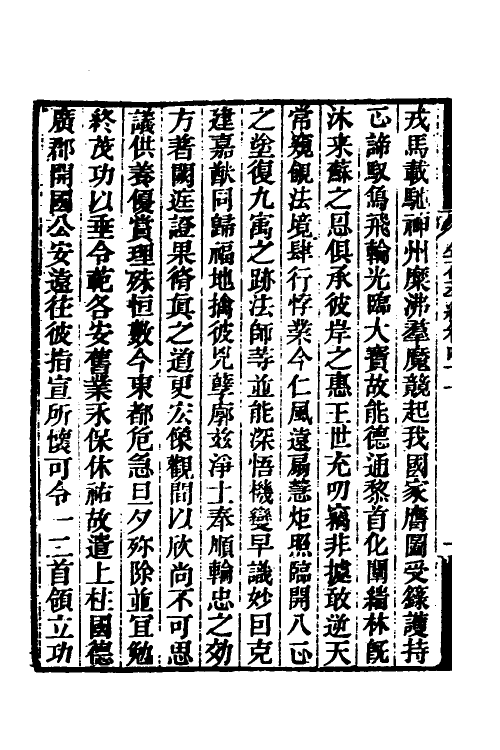 戎馬載馳神州糜沸羣魔競起我國家膺圖受籙護持
正諦馭鳥飛輪光臨大寶故能德通黎首化闡緇林旣
沐来蘇之恩俱承彼岸之惠王世充叨竊非據敢逆天
常窺覦法境肆行悖業今仁風遠扇慧炬照臨開八正
之塗復九寓之跡法師等並能深悟機變早識妙因克
建嘉猷同歸福地擒彼兇孽廓兹淨土奉順輸忠之効
方著闕逛證果脩真之道更宏像觀聞以欣尚不可思
議供養優賞理殊恒數今東都危急旦夕殄除並宜勉
終茂功以垂令範各安舊業永保休祐故遣上柱國德
廣郡開國公安遠往彼指宣所懷可令一二首領立功